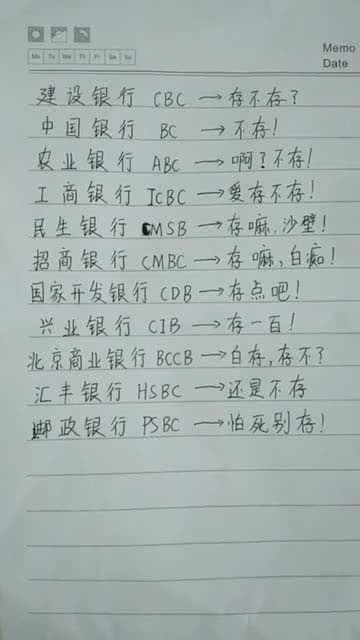 Memo
Mo Tu We Th Fr Sa Su
Date
建设银行 CBC → 存不存?
中国银行 BC → 不存!
农业银行 ABC → 啊?不存!
工商银行 ICBC → 爱存不存!
民生银行 CMSB → 存嘛,沙壁!
招商银行 CMBC → 存嘛,白痴!
国家开发银行 CDB → 存点吧!
兴业银行 CIB → 存一百!
北京商业银行 BCCB → 白存,存不?
汇丰银行 HSBC → 还是不存
邮政银行 PSBC → 怕死别存!